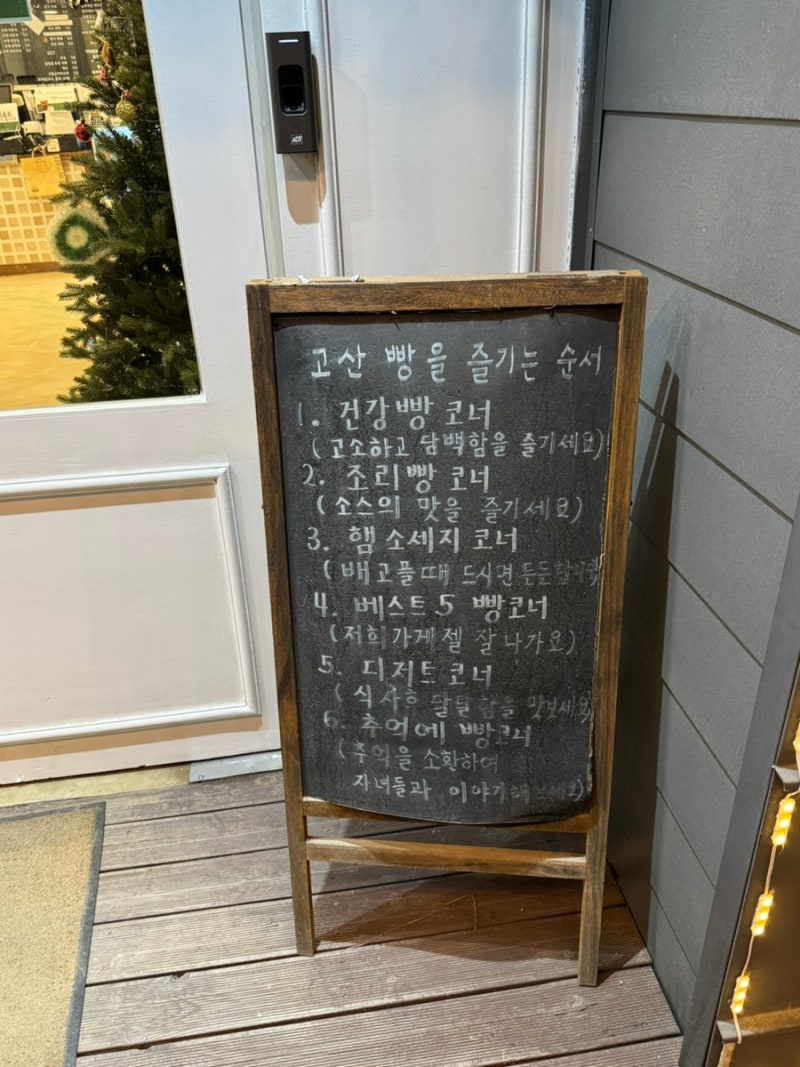 ADT
고산 빵을 즐기는 순서
1. 건강빵 코너
(고소하고 담백함을 즐기세요)
2. 조리빵 코너
(소스의 맛을 즐기세요)
3. 햄 소세지 코너
(배고플때 드시면
4. 베스트 5 빵코너
(저희가게 젤 잘 나가요)
5. 디저트 코너
(식사후 달달함을 맛보세요)
6. 추억에 빵코너
(추억을 소환하여
자녀들과 이야기해보세요)